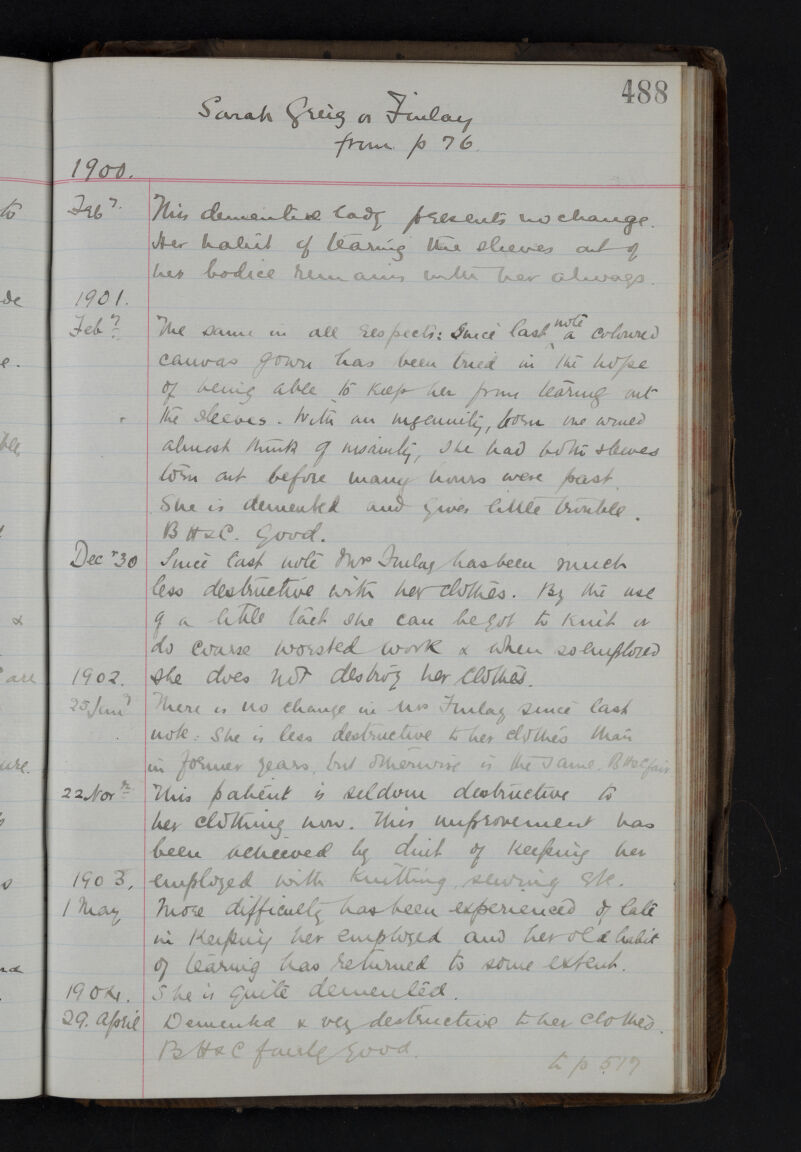 488
Sarah Greig or Finlay
from p 76.
1900.
Feby. This demented lady presents no change.
Her habit of tearing the sleeves out of
her bodice remains with her always.
1901.
Feby. The same in all respects: Since last note a coloured
canvas gown has been tried in the hope
of being able to keep her from tearing out
the sleeves. With an ingenuity, born one would
almost think of insanity, she had both sleeves
torn out before many hours were past.
She is demented and gives little trouble.
B H & C. Good.
Decr 30 Since last note Mrs Finlay has been much
less destructive with her clothes. By the use
of a little tact she can be got to knit or
do coarse worsted work & when so employed
1902. she does not destroy her clothes.
25 There is no change in Mrs Finlay since last
note: She is less destructive to her clothes than
in former years, but otherwise is the same. B H & C fair
22 Novr This patient is seldom destructive to
her clothing now. This improvement has
been achieved by dint of keeping her
1903. employed with knitting, sewing etc.
1 May More difficulty has been experienced of late
in keeping her employed and her old habit
of tearing has returned to some extent.
1904. She is quite demented.
29. April Demented & very destructive to her clothes.
B H & C fairly good.
to p 517
to
de
e.
ble
&
are
ure.
s